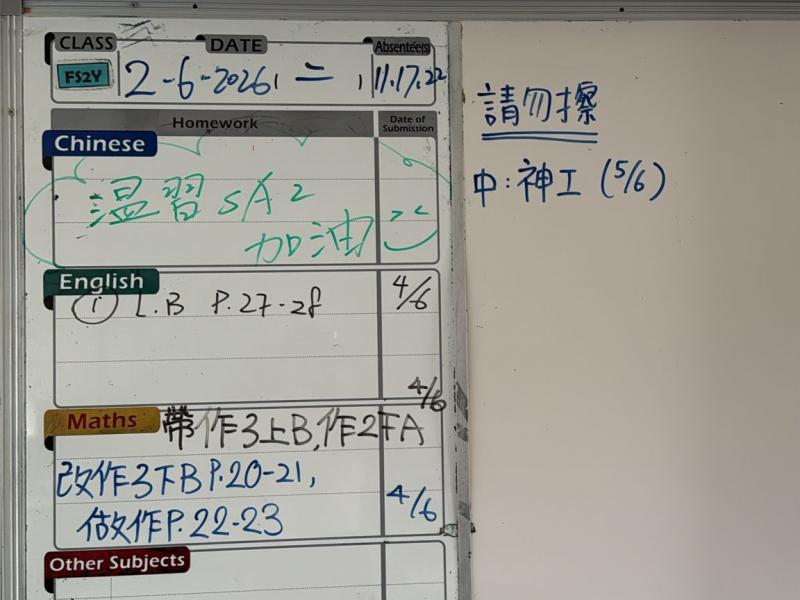 CLASS DATE Absentee(s)
FS2Y 2-6-2026, 二 , 11.17.22
Homework Date of Submission
Chinese
溫習 SA2
加油
English
① L.B P.27-28 4/6
Maths 4/6
帶作3上B,作2下A
改作3下B P.20-21,
做作P.22-23 4/6
Other Subjects
請勿擦
中:神工 (5/6)